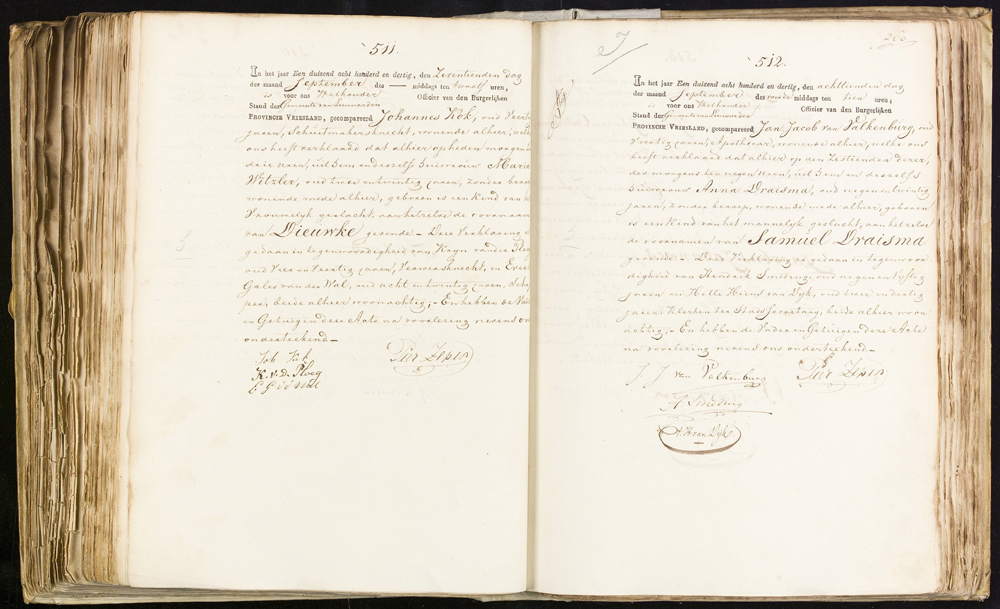 511.
In het jaar Een duizend acht honderd en dertig, den Zeventienden dag
der maand September des — middags ten twaalf uren,
is voor ons Wethouder Officier van den Burgerlijken
Stand der Gemeente van Leeuwarden
PROVINCIE VRIESLAND, gecompareerd Johannes Kok, oud Veert
jaren, Schuitmakersknecht, wonende alhier, welke
ons heeft verklaard dat alhier op heden morgen
drie uren, uit hem en deszelfs huisvrouw Maria
Witzler, oud twee en twintig jaren, zonder beroep
wonende mede alhier, geboren is een Kind van
Vrouwelijk geslacht, aan hetzelve de voornaam
van Dieuwke gevende – Deze Verklaring
gedaan in tegenwoordigheid van Keyn van der Ploeg
oud Vier en Veertig jaren, Ververs knecht, en Evert
Gales van der Wal, oud acht en twintig jaren,
beide alhier woonachtig, – En hebben de Vader
en Getuigen deze Acte na voorlezing nevens ons
onderteekend –
Joh Kok
K. v. d. Ploeg
Pier Zeper
J
260
512.
In het jaar Een duizend acht honderd en dertig, den achttienden dag
der maand September des voormiddags ten tien uren,
is voor ons Wethouder Officier van den Burgerlijken
Stand der Gemeente van Leeuwarden
PROVINCIE VRIESLAND, gecompareerd Jan Jacob van Valkenburg, oud
Veertig jaren, Apothecar, wonende alhier, welke ons
heeft verklaard dat alhier op den Zestienden dezer,
des morgens ten negen uren, uit hem en deszelfs
huisvrouw Anna Draisma, oud negen en twintig
jaren, zonder beroep, wonende mede alhier, geboren
is een Kind van het mannelijk geslacht, aan hetzelve
de voornamen van Samuel Draisma
gevende – Deze Verklaring is gedaan in tegenwoor
digheid van Hendrik Smeding, oud negen en vijftig
jaren en Hette Hieres van Dijk, oud twee en dertig
jaren, Klerken ter Stads Secretary, beide alhier woon
achtig, – En hebben de Vader en Getuigen deze Acte
na voorlezing nevens ons onderteekend –
J J van Valkenburg
Pier Zeper
H Smeding
H. H. van Dijk